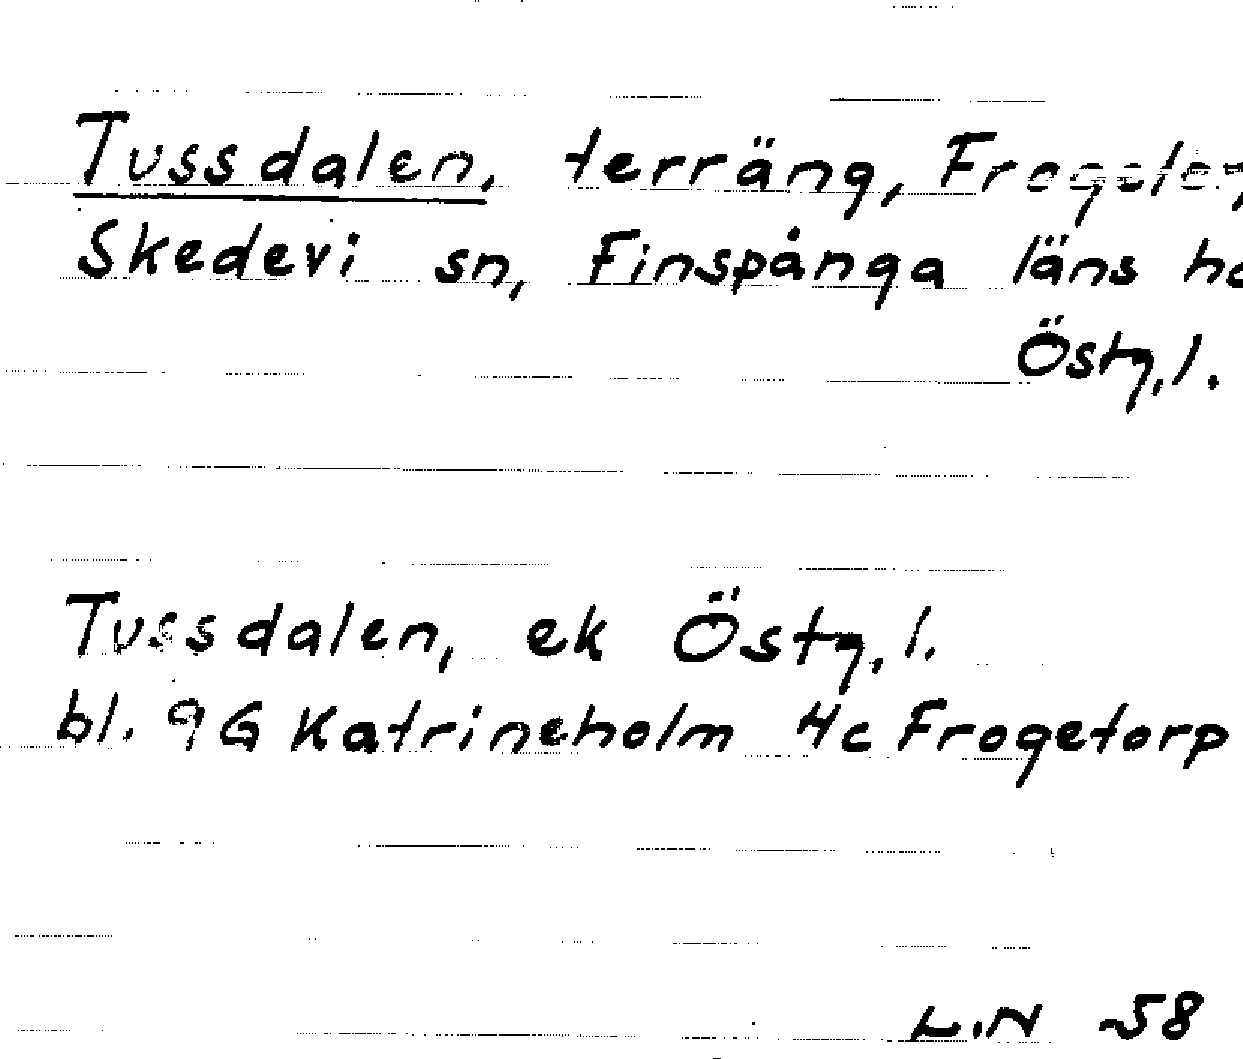 Tussdalen, terräng,
Skedevi sn, Finspånga läns
Östg.l.
Tussdalen, ek Östg.l.
bl. 9G Katrineholm 4c Frogetorp
L.N -58